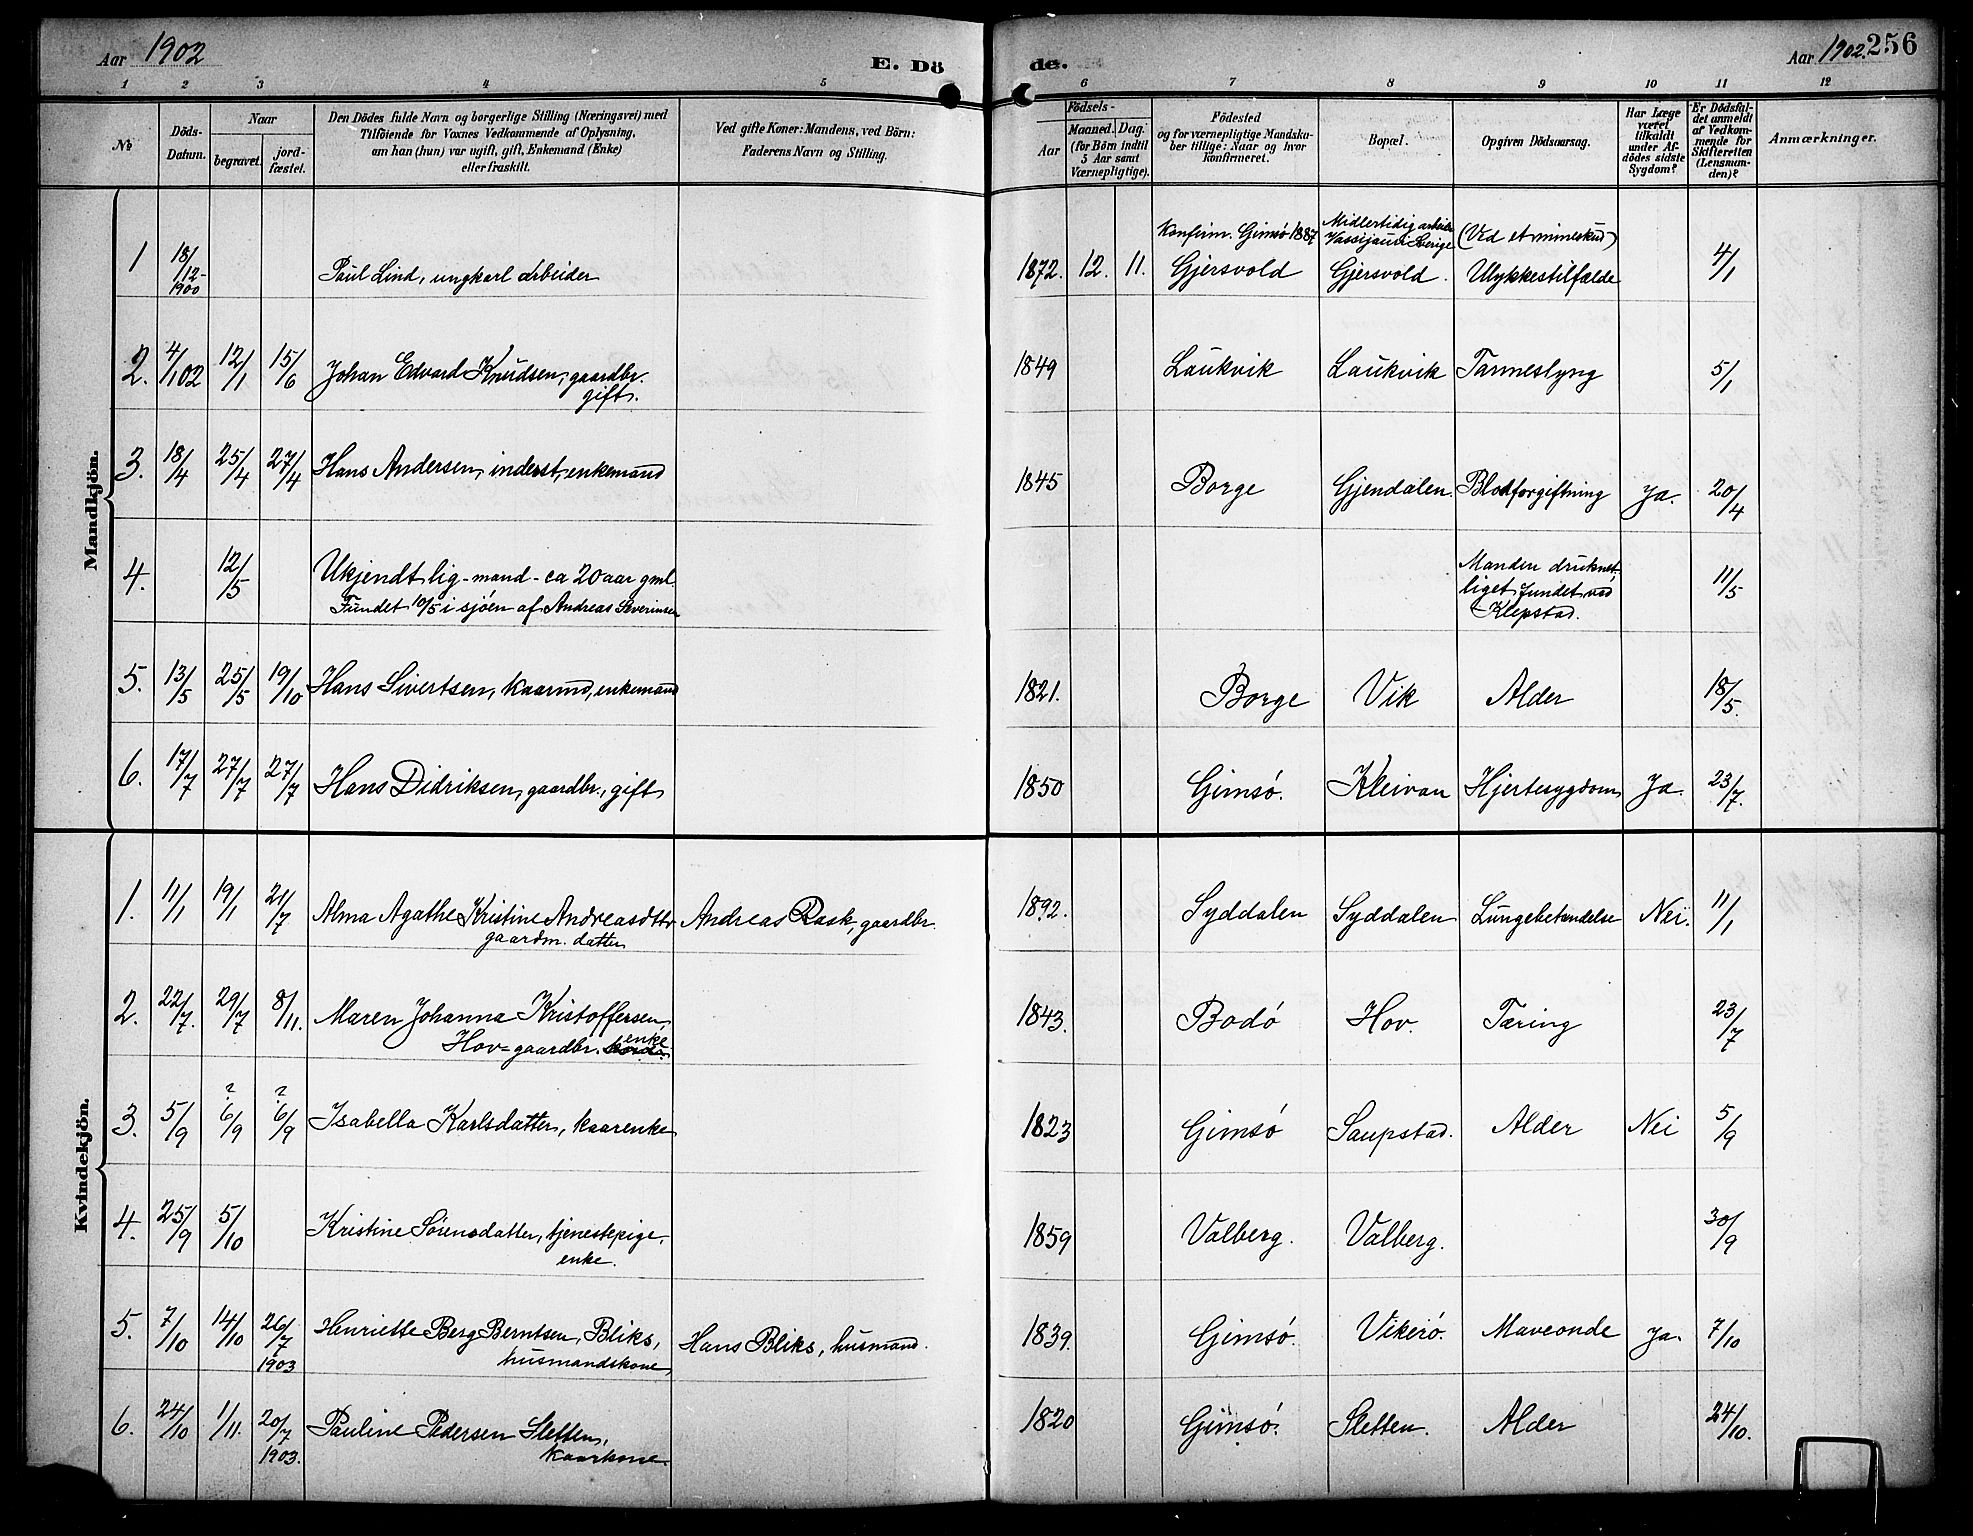 Aar 1902
E. Dö
de.
Aar 1902. 256
1 2 3 4 5 6 7 8 9 10 11 12
№
Döds-
Datum.
Naar
begravet.
jord-
fæstet.
Den Dödes fulde Navn og borgerlige Stilling (Næringsvei) med
Tilföiende for Voxnes Vedkommende af Oplysning,
om han (hun) var ugift, gift, Enkemand (Enke)
eller fraskilt.
Ved gifte Koner: Mandens, ved Börn:
Faderens Navn og Stilling.
Födsels-
Aar
Maaned. Dag.
(for Börn indtil
5 Aar samt
Værnepligtige).
Födested
og for værnepligtige Mandska-
ber tillige: Naar og hvor
konfirmeret.
Bopæl.
Opgiven Dödsaarsag.
Har Læge
været
tilkaldt
under Af-
dödes sidste
Sygdom?
Er Dödsfal-
det anmeldt
af Vedkom-
mende for
Skifteretten
(Lensman-
den)?
Anmærkninger.
Mandkjön.
1 18/12- 1900 Paul Lind, ungkarl arbeider 1872. 12. 11. Konfirm. Gimsö 1887 Gjersvold Midlertidig arbeider Vassijaur i Sverige Gjersvold. (Ved et mineskud) Ulykkestilfælde 4/1
2. 4/1 02 12/1 15/6 Johan Edvard Knudsen, gaardbr. 1849 Laukvik Laukvik Tanneslyng 5/1
gift.
3. 18/4 25/4 27/4 Hans Andersen, inderst, enkemand 1845 Borge Gjendalen. Blodforgiftning Ja. 20/4
4. 12/5 Ukjendt lig - mand - ca 20 aar gml. Manden druknet. 11/5
Fundet 10/5 i sjöen af Andreas Severinsen liget fundet ved
Klepstad.
5. 13/5 25/5 19/10 Hans Sivertsen, kaarmd, enkemand 1821. Borge Vik Alder 18/5.
6. 17/7 27/7 27/7 Hans Didriksen, gaardbr., gift 1850 Gimsö. Kleivan Hjertesygdom Ja. 23/7.
Kvindekjön.
1. 11/1 19/1 21/7 Alma Agathe Kristine Andreasdttr Andreas Rask, gaardbr. 1892. Syddalen Syddalen Lungebetændelse Nei. 11/1
gaardm. datter
2. 22/7. 29/7 8/11. Maren Johanna Kristoffersen, 1843. Bodö Hov. Tæring 23/7
Hov - gaardbr. enke
3. 5/9 ? 6/9 ? 6/9 Isabella Karlsdatter, kaarenke 1823 Gimsö Saupstad. Alder Nei 5/9
4. 25/9 5/10 Kristine Sörensdatter, tjenestepige, 1859 Valberg. Valberg. 30/9
enke.
5. 7/10 14/10 26/7 1903 Henriette Berg Berntsen, Bliks, Hans Bliks, husmand. 1839. Gimsö. Vikerö. Maveonde Ja. 7/10
husmandskone,
6. 24/10 1/11. 20/7 1903. Pauline Pedersen Sletten, 1820 Gimsö. Sletten. Alder 24/10.
kaarkone.